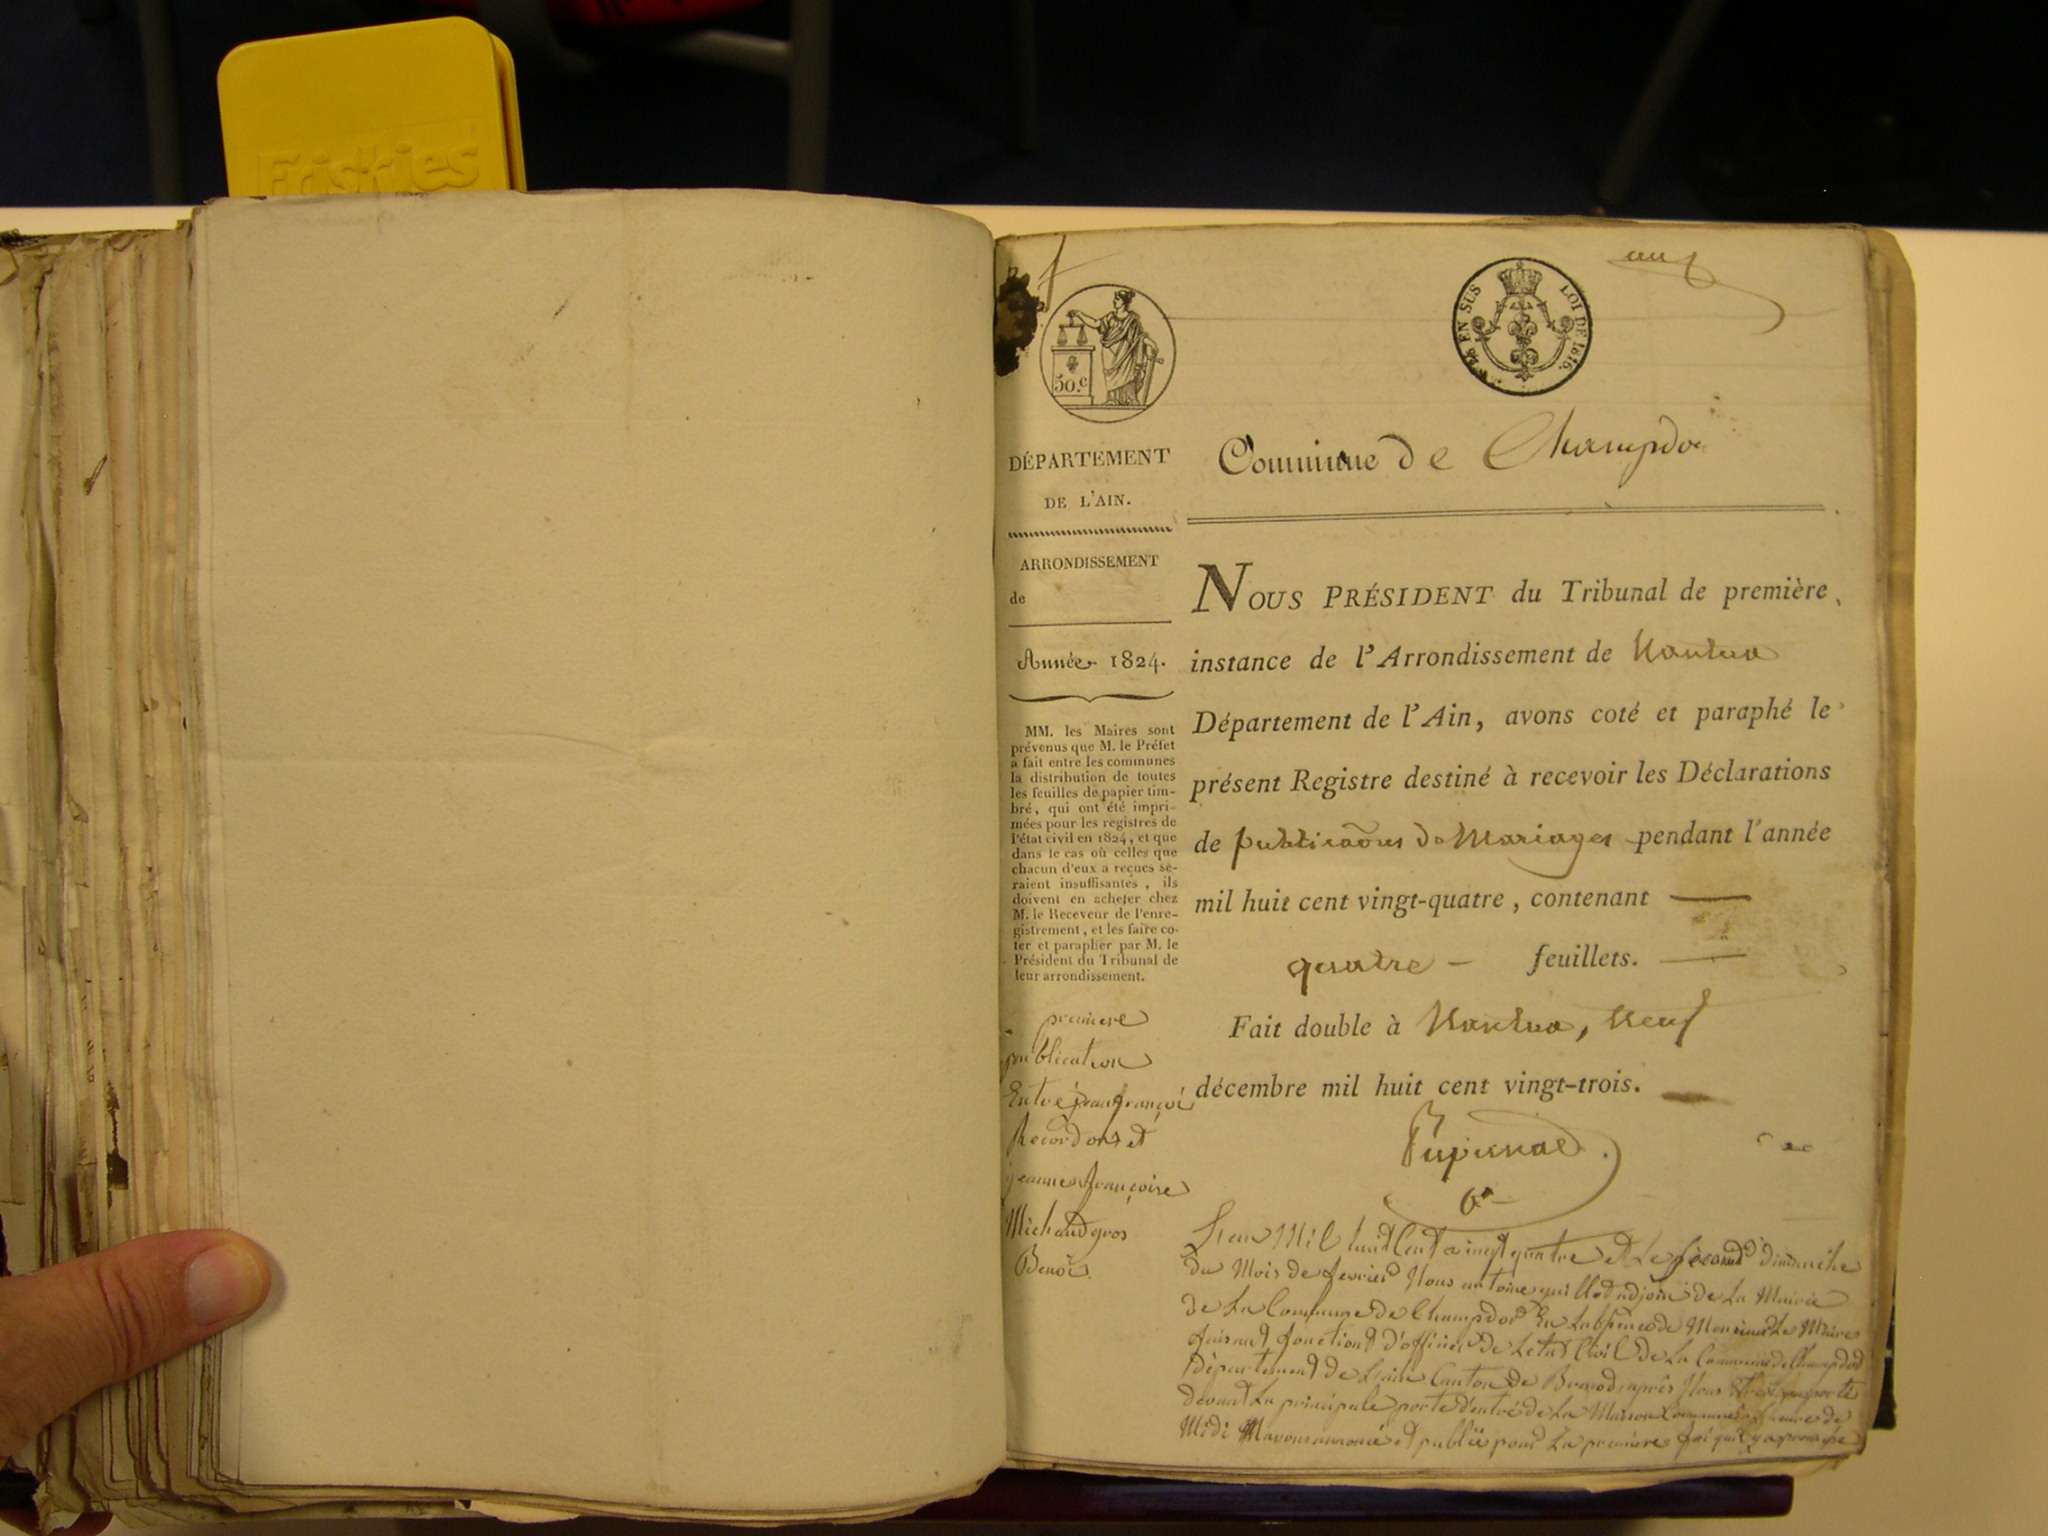 Friskies
un
50.c
EN SUS LOI DE 1816.
DÉPARTEMENT
DE L'AIN.
ARRONDISSEMENT
de
Année 1824.
MM. les Maires sont
prévenus que M. le Préfet
a fait entre les communes
la distribution de toutes
les feuilles de papier tim-
bré, qui ont été impri-
mées pour les registres de
l'état civil en 1824, et que
dans le cas où celles que
chacun d'eux a reçues se-
raient insuffisantes, ils
doivent en acheter chez
M. le Receveur de l'enre-
gistrement, et les faire co-
ter et parapher par M. le
Président du Tribunal de
leur arrondissement.
première
publication
Entre jean françoi
Recordons et
jeanne françoise
Michaud gros
Benoi
Commune de Champdor
NOUS PRÉSIDENT du Tribunal de première
instance de l'Arrondissement de Nantua
Département de l'Ain, avons coté et paraphé le
présent Registre destiné à recevoir les Déclarations
de publicaõns de Mariages pendant l'année
mil huit cent vingt-quatre, contenant
quatre feuillets.
Fait double à Nantua, Neuf
décembre mil huit cent vingt-trois.
Lan Mil huit Cent vingt quatre et Le second dimanche
du Mois de fevrier Nous antoine guillot adjoint de La Mairie
de La Commune de Champdor En Labsence de Monsieur Le Maire
faisant fonctions d'officier de Letat Civil de La Commune de Champdor
Département de Lain Canton de Brenod après Nous
devant La principale porte d'entré de La Maison Commune heure de
Midi avons annoncé et publié pour La premiere foi quil y a promesse